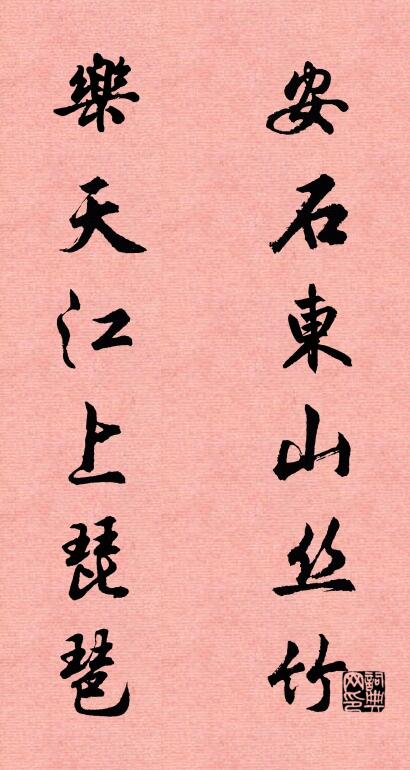 安石東山丝竹
樂天江上琵琶
詞典网印